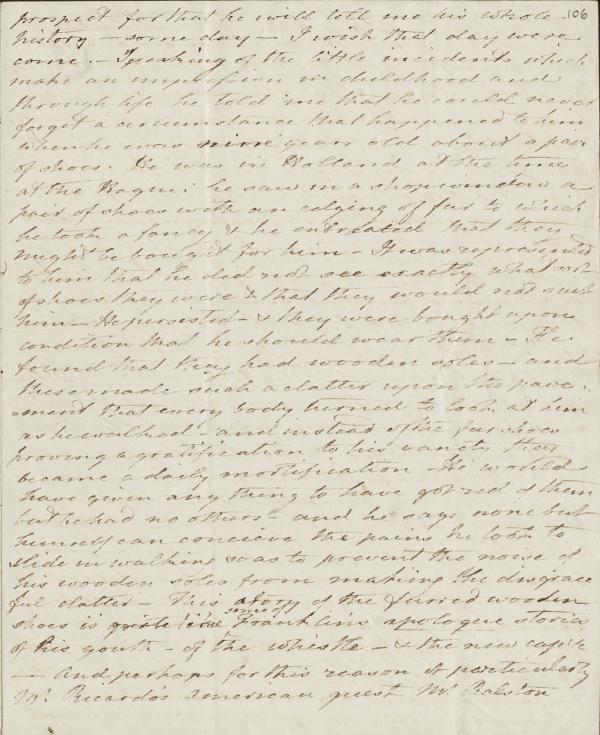 prospect for that he will tell me his whole 106
history – some day – I wish that day were
come. – Speaking of the little incidents which
make an impression in childhood and
through life he told me that he could never
forget a circumstance that happened to him
when he was nine years old about a pair
of shoes. He was in Holland at the time
at the Hague: he saw in a shopwindow a
pair of shoes with an edging of fur to which
he took a fancy & he entreated that they
might be bought for him – It was represented
to him that he did not see exactly what sort
of shoes they were & that they would not suit
him – He persisted – & they were bought upon
condition that he should wear them – He
found that they had wooden soles – and
these made such a clatter upon the pave-
=ment that every body turned to look at him
as he walked – and instead of the fur shoes
proving a gratification to his vanity they
became a daily mortification – He would
have given any thing to have got rid of them
but he had no others – and he says none but
himself can concieve the pains he took to
slide in walking so as to prevent the noise of
his wooden soles from making the disgrace
ful clatter – This story of the furred wooden
shoes is quite like some of Franklins apologue stories
of his youth – of the whistle – & the new cap &c
– And perhaps for this reason it particularly
Mr. Ricardo's American guest Mr. Ralston